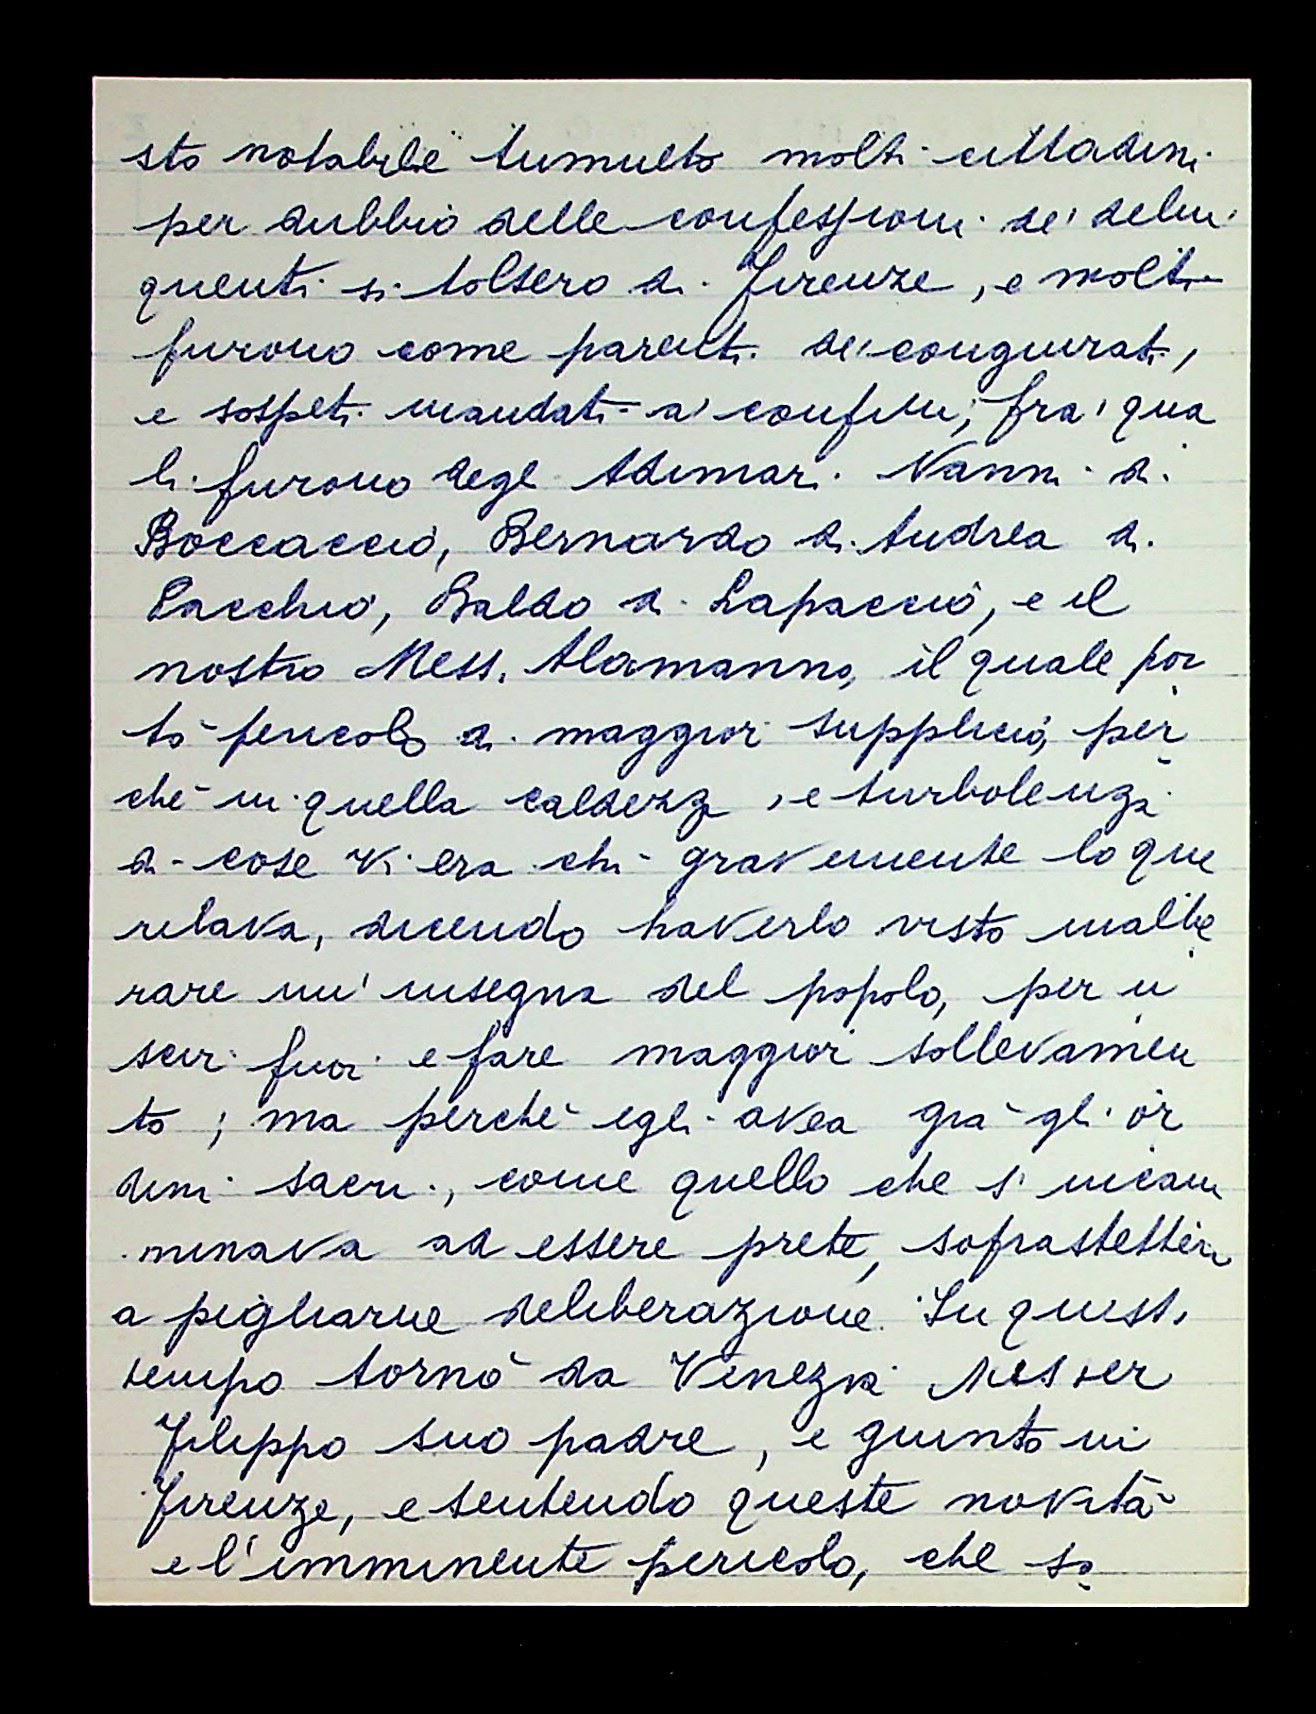 sto notabile tumulto molti cittadini
per dubbio delle confessioni de' delin
quenti si tolsero di Firenze, e molti
furono come parenti de' congiurati,
e sospeti mandati a' confini; fra' qua
li furono degl Adimari Nanni di
Boccaccio, Bernardo di Andrea di
Pacchio, Baldo di Lapaccio, e il
nostro Mess. Alamanno, il quale por
tò pericolo di maggior supplicio, per
chè in quella caldezza, e turbolenza
di cose vi era chi gravemente lo que
relava, dicendo haverlo visto inalbe
rare un' insegna del popolo, per u
scir fuori e fare maggior sollevamen
to; ma perchè egli avea già gli or
dini sacri, come quello che s'incam
minava ad essere prete, soprastettero
a pigliarne deliberazione. In questo
tempo tornò da Venezia Messer
Filippo suo padre, e giunto in
Firenze, e sentendo queste novità
e l'imminente pericolo, che so